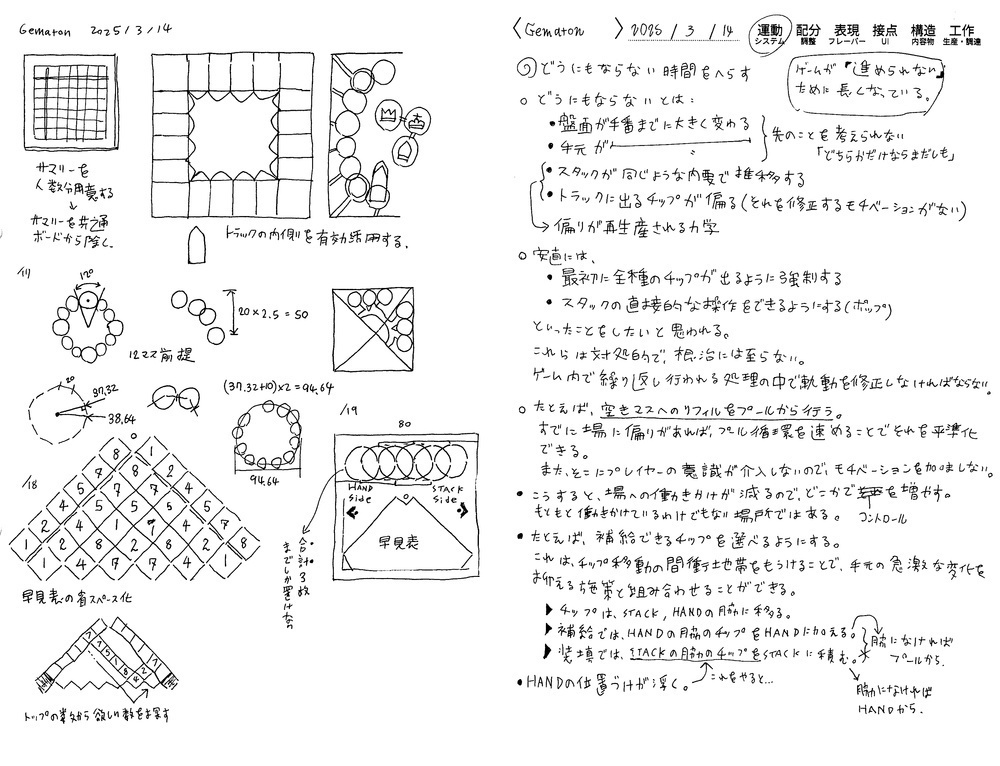 Gematon 2025/3/14
サマリーを
人数分用意する
↓
サマリーを共通
ボードから除く.
トラックの内側を有効活用する.
12°
20×2.5=50
12マス前提
20
37,32
38,64
(37.32+10)×2=94,64
94,64
/18
8 1
8 2
5 7 2 4
4 5 7 7 5
2 4 1 4 5 7
1 2 4 5 7 2 1 8
2 8 7 4 7 4
早見表の省スペース化
トップの数から欲しい数を探す
/19
80
HAND side
STACK side
早見表
合計3枚
までしか置けない
〈Gematon 〉 2025 / 3 / 14
運動 配分 表現 接点 構造 工作
システム 調整 フレーバー UI 内容物 生産・調達
どうにもならない時間をへらす
ゲームが「進められない」
ために長くなっている。
○ どうにもならないとは:
・盤面が手番までに大きく変わる
・手元が
先のことを考えられない
「どちらかだけならまだしも」
・スタックが同じような内要で推移する
・トラックに出るチップが偏る(それを修正するモチベーションがない)
→ 偏りが再生産される力学
○ 安直には、
・最初に全種のチップが出るように強制する
・スタックの直接的な操作をできるようにする(ポップ)
といったことをしたいと思われる。
これらは対処的で、根治には至らない。
ゲーム内で繰り返し行われる処理の中で軌動を修正しなければならない。
○ たとえば、空きマスへのリフィルをプールから行う。
すでに場に偏りがあれば、プール循環を速めることでそれを平準化
できる。
また、そこにプレイヤーの意識が介入しないので、モチベーションを加味しない。
・こうすると、場への働きかけが減るので、どこかでを増やす。
コントロール
もともと働きかけているわけでもない場所ではある。
・たとえば、補給できるチップを選べるようにする。
これは、チップ移動の間に緩衝地帯をもうけることで、手元の急激な変化を
おさえる施策と組み合わせることができる。
▶ チップは、STACK, HANDの脇に移る。
▶ 補給では、HANDの脇のチップをHANDに加える。
▶ 装填では、STACKの脇のチップをSTACKに積む。
脇になければ
プールから.
脇になければ
HANDから.
・HANDの位置づけが浮く。
これをやると…